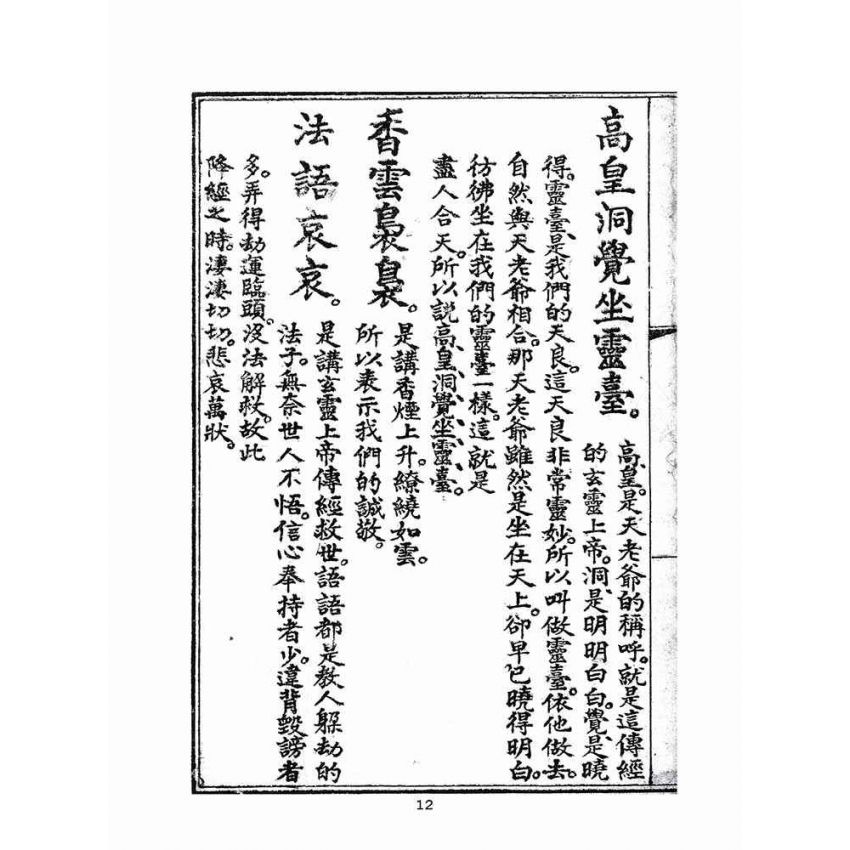 高皇洞覺坐靈臺。
高皇。是天老爺的稱呼。就是這傳經
的玄靈上帝。洞、是明明白白。覺、是曉
得。靈臺、是我們的天良。這天良非常靈妙。所以叫做靈臺。依他做去。
自然與天老爺相合。那天老爺雖然是坐在天上。卻早已曉得明白。
彷彿坐在我們的靈臺一樣。這就是
盡人合天。所以說高皇洞覺坐靈臺。
香雲裊裊。
是講香煙上升。繚繞如雲。
所以表示我們的誠敬。
法語哀哀。
是講玄靈上帝傳經救世。語語都是教人躲劫的
法子。無奈世人不悟。信心奉持者少。違背毀謗者
多。弄得劫運臨頭。沒法解救。故此
降經之時。淒淒切切。悲哀萬狀。
12